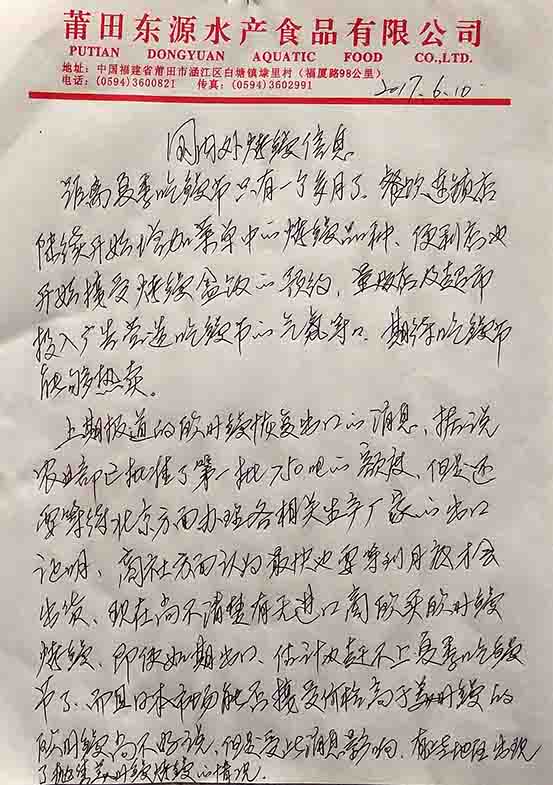 莆田东源水产食品有限公司
PUTIAN DONGYUAN AQUATIC FOOD CO.,LTD.
地址：中国福建省莆田市涵江区白塘镇埭里村（福厦路98公里）
电话：(0594)3600821 传真：(0594)3602991
2017.6.10
国内外烤鳗信息
距离夏季吃鳗节只有一个多月了、餐饮连锁店
陆续开始增加菜单中的烤鳗品种、便利店也
开始接受烤鳗盒饭的预约，量贩店及超市
投入广告营造吃鳗节的气氛等、期待吃鳗节
能够热卖。
上期报道的欧洲鳗恢复出口的消息、据说
农业部已批准了第一批750吨的额度、但是还
要等待北京方面办理各相关生产厂家的出口
证明、商社方面认为最快也要等到月底才会
出货、现在尚不清楚有无进口商欲买欧洲鳗
烤鳗、即使如期出口、估计也赶不上夏季吃鳗
节了、而且日本市场能否接受价格高于美洲鳗的
欧洲鳗尚不好说，但是受此消息影响，有些地区出现
了抛售美洲鳗烤鳗的情况。